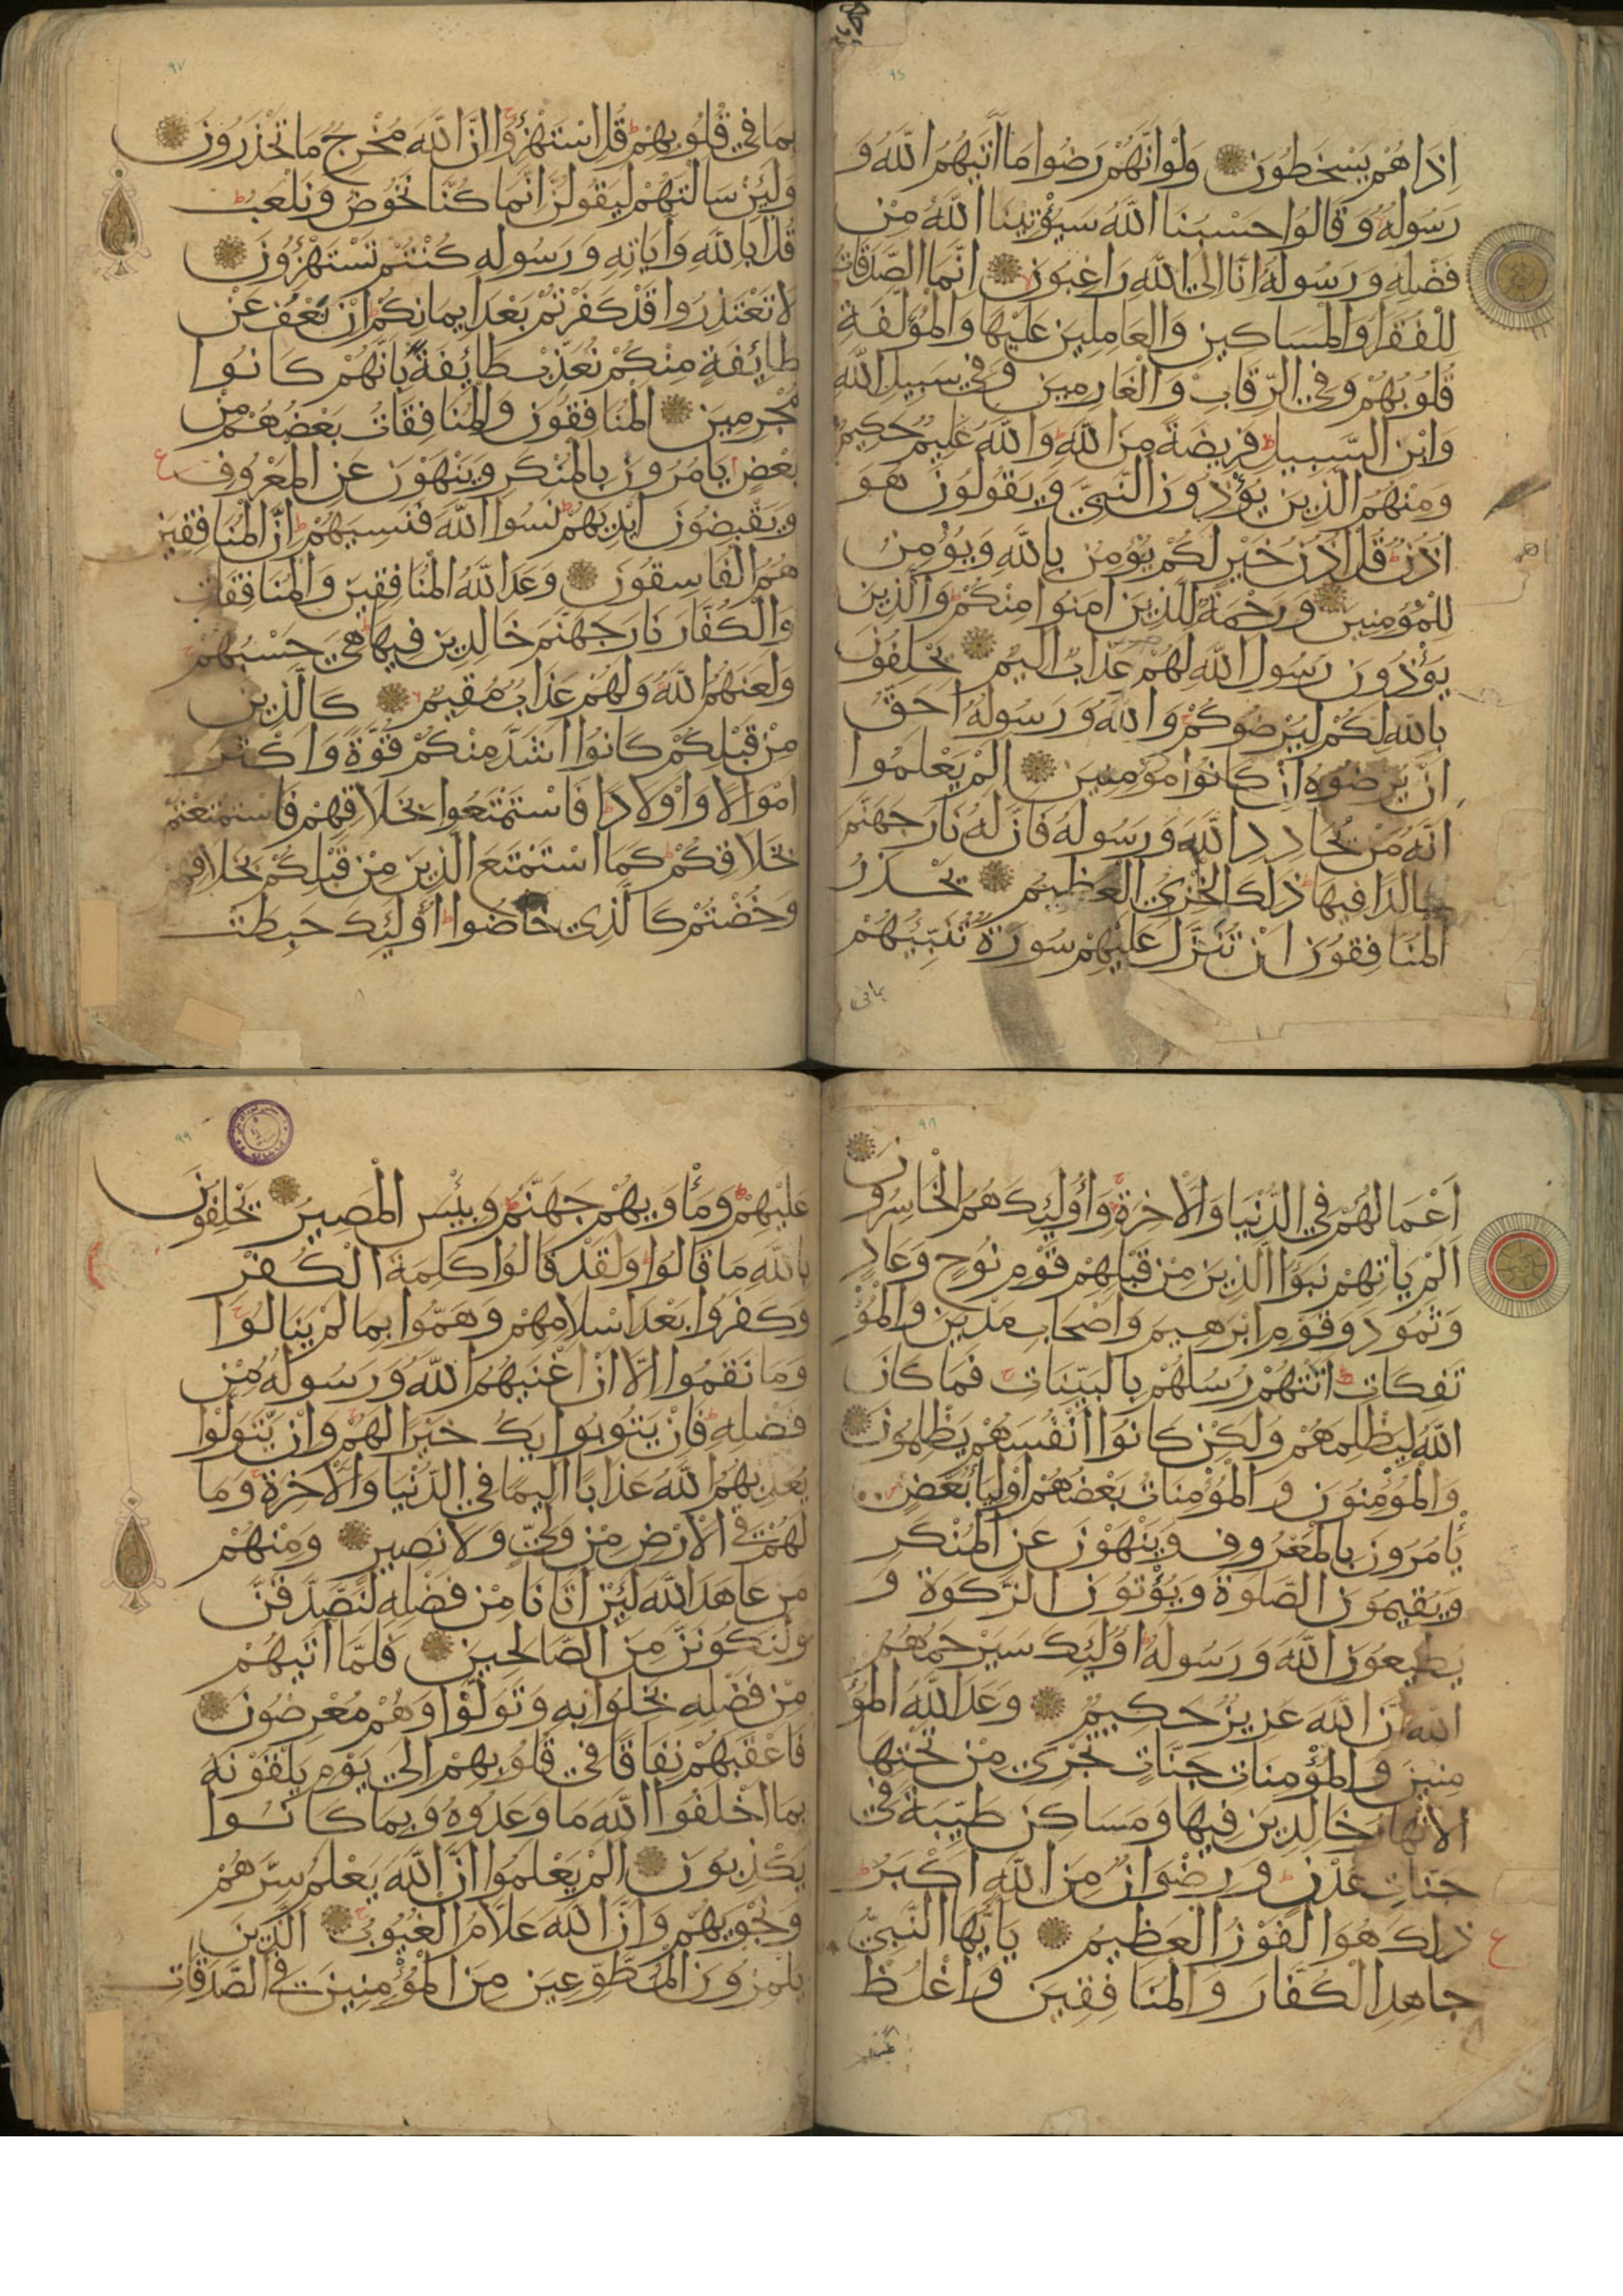 اذا هم يسخطون ولو انهم رضوا ما اتيهم الله و
رسوله وقالوا حسبنا الله سيؤتينا الله من
فضله ورسوله انا الى الله راغبون انما الصدقات
للفقرا والمساكين والعاملين عليها والمؤلفة
قلوبهم وفي الرقاب والغارمين وفي سبيل الله
وابن السبيل فريضة من الله والله عليم حكيم
ومنهم الذين يؤذون النبي ويقولون هو
اذن قل اذن خير لكم يؤمن بالله ويؤمن
للمؤمنين ورحمة للذين امنوا منكم والذين
يؤذون رسول الله لهم عذاب اليم يحلفون
بالله لكم ليرضوكم والله ورسوله احق
ان يرضوه ان كانوا مؤمنين الم يعلموا
انه من يحادد الله ورسوله فان له نار جهنم
خالدا فيها ذلك الخزي العظيم يحذر
المنافقون ان تنزل عليهم سورة تنبيهم
بما في
بما في قلوبهم قل استهزؤا ان الله مخرج ما تحذرون
ولئن سالتهم ليقولن انما كنا نخوض ونلعب
قل ابالله واياته ورسوله كنتم تستهزؤن
لا تعتذروا قد كفرتم بعد ايمانكم ان نعف عن
طايفة منكم نعذب طايفة بانهم كانوا
مجرمين المنافقون والمنافقات بعضهم من
بعض يامرون بالمنكر وينهون عن المعروف
ويقبضون ايديهم نسوا الله فنسيهم ان المنافقين
هم الفاسقون وعد الله المنافقين والمنافقات
والكفار نار جهنم خالدين فيها هي حسبهم
ولعنهم الله ولهم عذاب مقيم كالذين
من قبلكم كانوا اشد منكم قوة واكثر
اموالا واولادا فاستمتعوا بخلاقهم فاستمتعتم
بخلاقكم كما استمتع الذين من قبلكم بخلاقهم
وخضتم كالذي خاضوا اولئك حبطت
اعمالهم في الدنيا والاخرة واولئك هم الخاسرون
الم ياتهم نبؤا الذين من قبلهم قوم نوح وعاد
وثمود وقوم ابرهيم واصحاب مدين والمؤ
تفكات اتتهم رسلهم بالبينات فما كان
الله ليظلمهم ولكن كانوا انفسهم يظلمون
والمؤمنون والمؤمنات بعضهم اوليا بعض
يأمرون بالمعروف وينهون عن المنكر
ويقيمون الصلوة ويؤتون الزكوة و
يطيعون الله ورسوله اولئك سيرحمهم
الله ان الله عزيز حكيم وعد الله المؤ
منين والمؤمنات جنات تجري من تحتها
الانهار خالدين فيها ومساكن طيبة في
جنات عدن ورضوان من الله اكبر
ذلك هو الفوز العظيم يا يها النبي
جاهد الكفار والمنافقين واغلظ
عليهم ومأويهم جهنم وبئس المصير يحلفون
بالله ما قالوا ولقد قالوا كلمة الكفر
وكفروا بعد اسلامهم وهموا بما لم ينالوا
وما نقموا الا ان اغنيهم الله ورسوله من
فضله فان يتوبوا يك خيرا لهم وان يتولوا
يعذبهم الله عذابا اليما في الدنيا والاخرة وما
لهم في الارض من ولي ولا نصير ومنهم
من عاهد الله لئن اتانا من فضله لنصدقن
ولنكونن من الصالحين فلما اتيهم
من فضله بخلوا به وتولوا وهم معرضون
فاعقبهم نفاقا في قلوبهم الى يوم يلقونه
بما اخلفوا الله ما وعدوه وبما كانوا
يكذبون الم يعلموا ان الله يعلم سرهم
ونجويهم وان الله علام الغيوب الذين
يلمزون المطوعين من المؤمنين في الصدقات